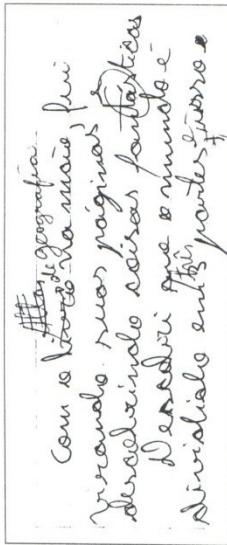 Atlas de geografia
Com o livro na mão, fui
virando suas páginas e
descobrindo coisas fantásticas
Descobri que o mundo é
três
dividido em 3 partes